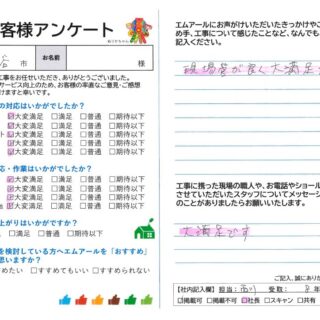 客様アンケート
市
お名前
様
工事をお任せいただき、ありがとうございました。
サービス向上のため、お客様の率直なご意見・ご感想
けますと幸いです。
の対応はいかがでしたか?
大変満足 □満足 □普通 □期待以下
大変満足 □満足 □普通 □期待以下
大変満足 □満足 □普通 □期待以下
大変満足 □満足 □普通 □期待以下
大変満足 □満足 □普通 □期待以下
応・作業はいかがでしたか?
大変満足 □満足 □普通 □期待以下
大変満足 □満足 □普通 □期待以下
大変満足 □満足 □普通 □期待以下
大変満足 □満足 □普通 □期待以下
上がりはいかがですか?
大変満足 □満足 □普通 □期待以下
を検討している方へエムアールを「おすすめ」
思いますか?
めたい □すすめてもいい □すすめられない
エムアールにお声がけいただいたきっかけやご
め手、工事について感じたことなど、なんでも
記入ください。
現場監が良く大満足
工事に携った現場の職人や、お電話やショール
させていただいたスタッフについてメッセージ
のことがありましたらお願いいたします。
大満足です
ご記入、誠にあり
【社内記入欄】 担当: 市川 受: 8年
□掲載可 □掲載不可 社長 □スキャン □共有